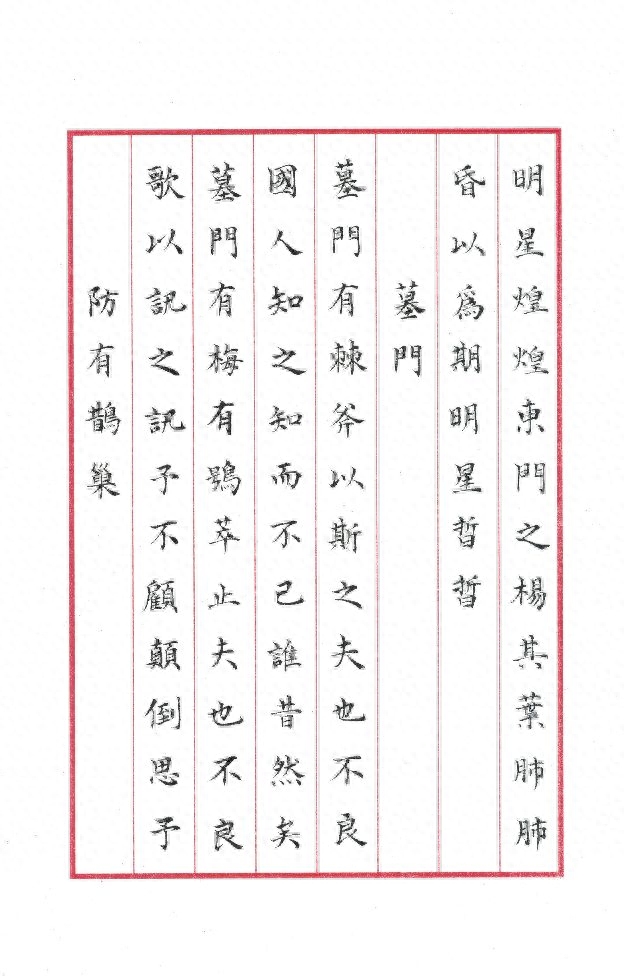 明星煌煌東門之楊其葉肺肺
昏以爲期明星晢晢
墓門
墓門有棘斧以斯之夫也不良
國人知之知而不已誰昔然矣
墓門有梅有鴞萃止夫也不良
歌以訊之訊予不顧顛倒思予
防有鵲巢